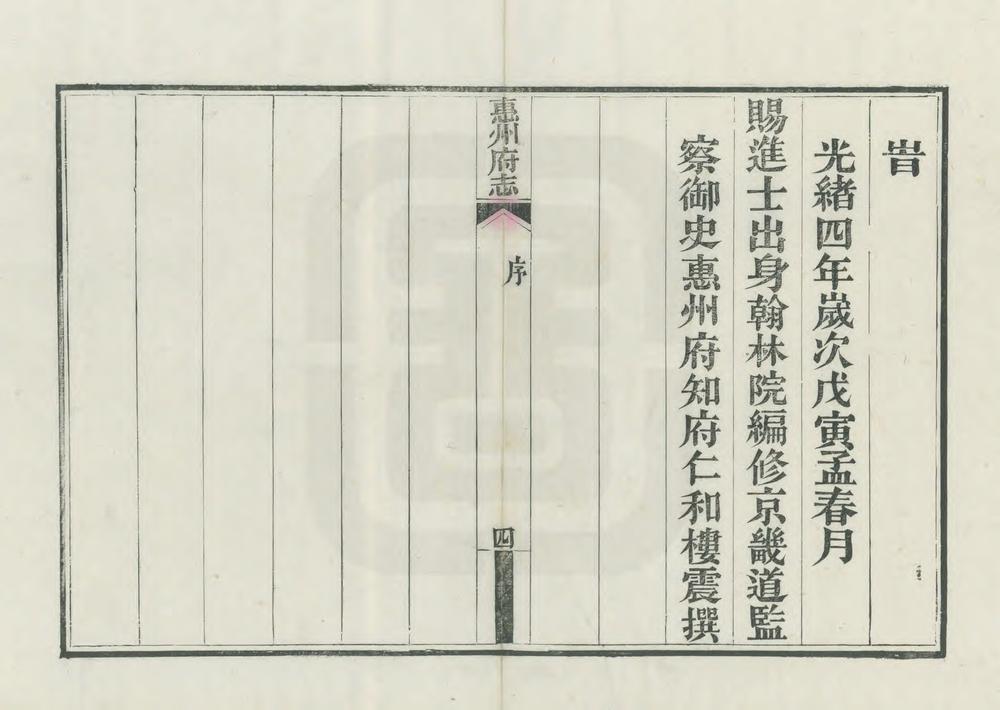 旹
光緒四年嵗次戊寅孟春月
賜進士出身翰林院編修京畿道監
察御史惠州府知府仁和樓震撰
惠州府志
序
四